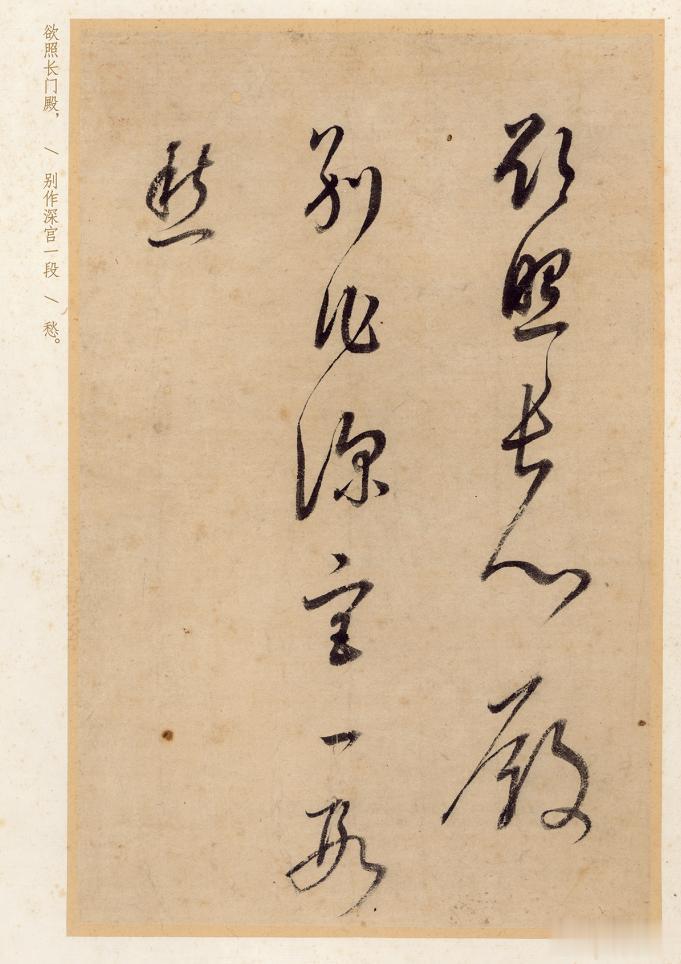 欲照长门殿
别作深宫一段
愁
欲照长门殿， \ 别作深宫一段 \ 愁。